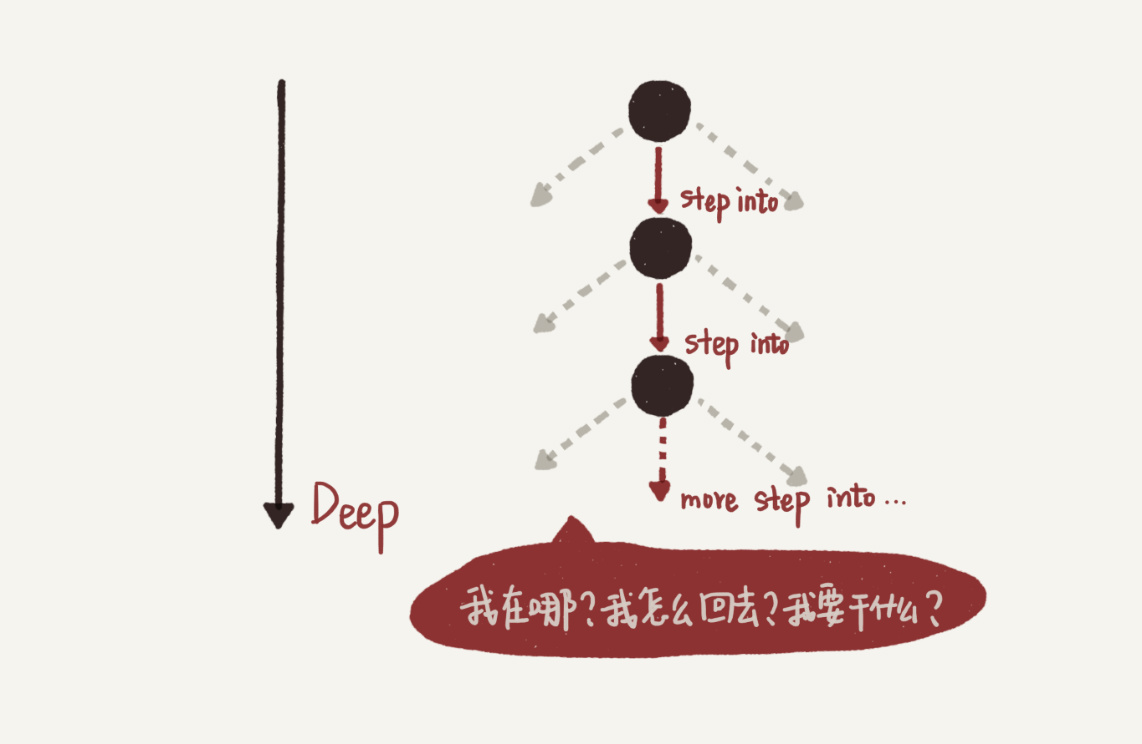 step into
step into
Deep
more step into ...
我在哪？我怎么回去？我要干什么？